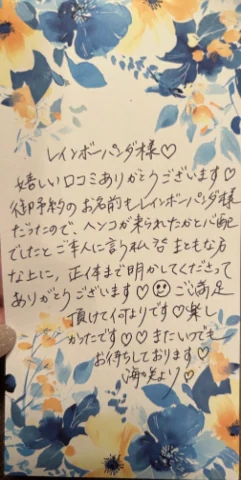 レインボーパンダ様♡
嬉しい口コミありがとうございます♡
御予約のお名前もレインボーパンダ様
だったので、ヘンコが来られたかと心配
でしたとご本人に言う私 まともな方
な上に、正体まで明かしてくださって
ありがとうございます♡☺ご満足
頂けて何よりです♡楽し
かったです♡♡またいつでも
お待ちしております♡
より♡